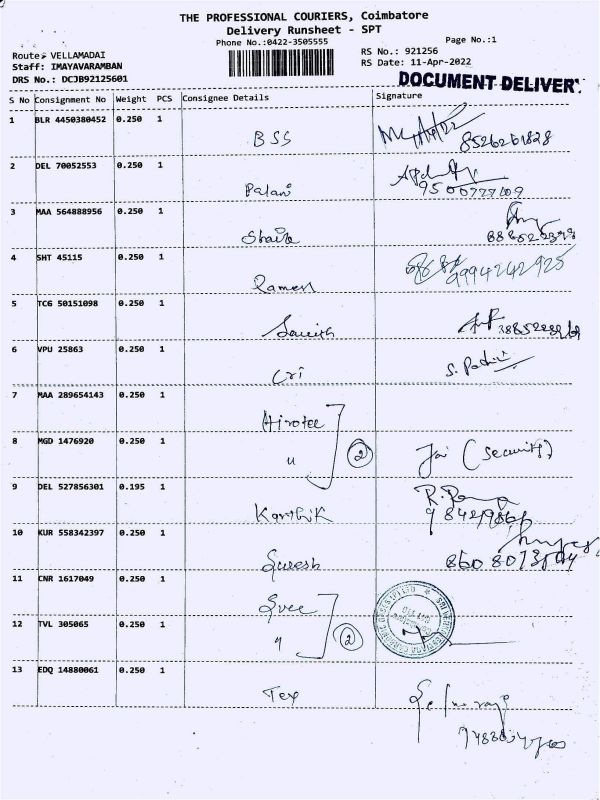 THE PROFESSIONAL COURIERS, Coimbatore
Delivery Runsheet - SPT
Phone No.:0422-3505555
Page No.:1
Route: VELLAMADAI
RS No.: 921256
Staff: IMAYAVARAMBAN
RS Date: 11-Apr-2022
DRS No.: DCJB92125601
DOCUMENT DELIVERY
S No Consignment No Weight PCS Consignee Details Signature
1 BLR 4450380452 0.250 1
BSS 8526261828
2 DEL 70052553 0.250 1
Palani
3 MAA 564888956 0.250 1
4 SHT 45115 0.250 1
Ramesh 9994242925
5 TCG 50151098 0.250 1
6 VPU 25863 0.250 1
Cri
7 MAA 289654143 0.250 1
8 MGD 1476920 0.250 1
2 Jai (Security)
9 DEL 527856301 0.195 1
Karthik
10 KUR 558342397 0.250 1
Suresh
11 CNR 1617049 0.250 1
Sree
12 TVL 305065 0.250 1
2
13 EDQ 14880061 0.250 1
Tex